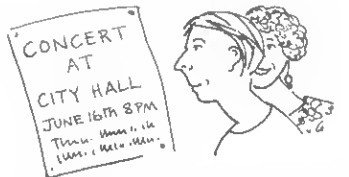 CONCERT
AT
CITY HALL
JUNE 16TH 8PM